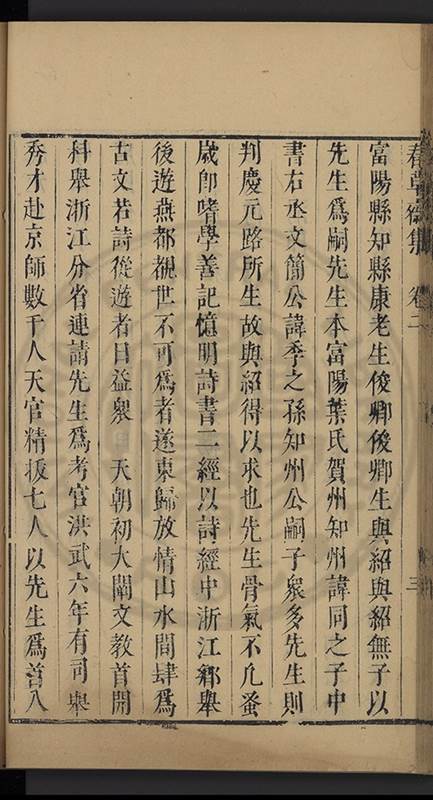 春草齋集 卷二 三
富陽縣知縣康老生俊卿俊卿生與紹與紹無子以
先生爲嗣先生本富陽葉氏賀州知州諱同之子中
書右丞文簡公諱季之孫知州公嗣子衆多先生則
判慶元路所生故與紹得以求也先生骨氣不凡蚤
歲即嗜學善記憶明詩書二經以詩經中浙江鄉舉
後遊燕都覩世不可爲者遂東歸放情山水間肆爲
古文若詩從遊者日益衆 天朝初大闡文教首開
科舉浙江分省連請先生爲考官洪武六年有司舉
秀才赴京師數千人天官精拔七人以先生爲首入